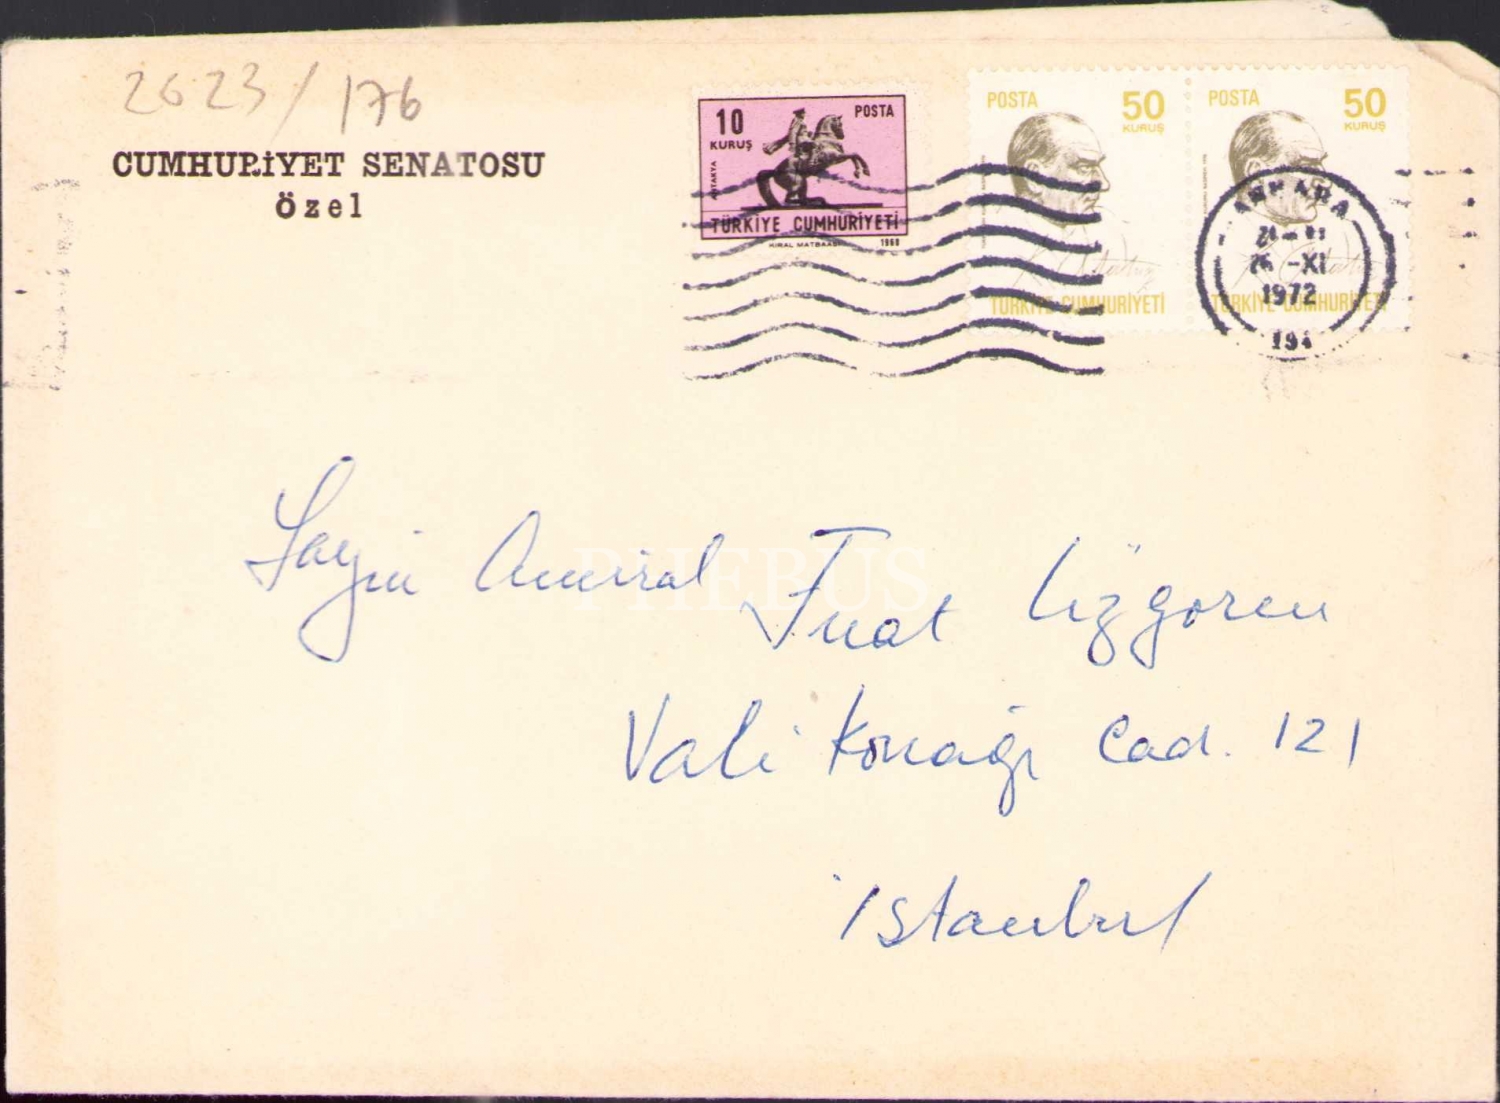 2623/176
CUMHURİYET SENATOSU
özel
10
KURUŞ
POSTA
ANTAKYA
TÜRKİYE CUMHURİYETİ
KIRAL MATBAASI
1968
POSTA
50
KURUŞ
TÜRKİYE CUMHURİYETİ
POSTA
50
KURUŞ
TÜRKİYE CUMHURİYETİ
ANKARA
26-XI
1972
Sayın Amiral Fuat Üzgören
Vali Konağı Cad. 121
İstanbul
PHEBUS